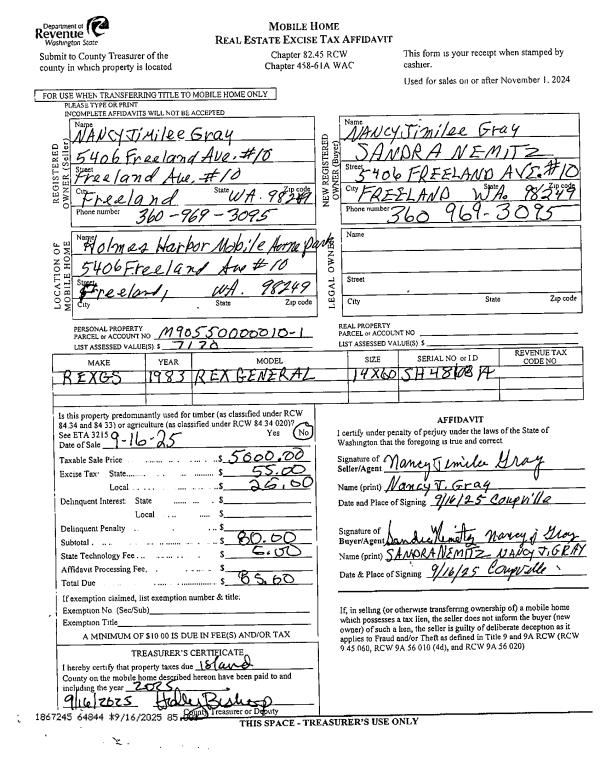 Department of
Revenue
Washington State
Submit to County Treasurer of the
county in which property is located
MOBILE HOME
REAL ESTATE EXCISE TAX AFFIDAVIT
Chapter 82.45 RCW
Chapter 458-61A WAC
This form is your receipt when stamped by
cashier.
Used for sales on or after November 1, 2024
FOR USE WHEN TRANSFERRING TITLE TO MOBILE HOME ONLY
PLEASE TYPE OR PRINT
INCOMPLETE AFFIDAVITS WILL NOT BE ACCEPTED
REGISTERED
OWNER (Seller)
Name
NANCY Jimilee Gray
5406 Freeland Ave. #10
Street
Freeland Ave, #10
City State Zip code
Freeland WA. 98249
Phone number
360-969-3095
NEW REGISTERED
OWNER (Buyer)
Name
NANCY Jimilee Gray
SANDRA NEMITZ
Street
5406 FREELAND AVE. #10
City State Zip code
FREELAND WA. 98249
Phone number
360 969-3095
LOCATION OF
MOBILE HOME
Name
Holmes Harbor Mobile Home Park
5406 Freeland Ave #10
Street
Freeland, WA. 98249
City State Zip code
LEGAL OWNER
Name
Street
City State Zip code
PERSONAL PROPERTY
PARCEL or ACCOUNT NO M90550000010-1
LIST ASSESSED VALUE(S) $ 7120
REAL PROPERTY
PARCEL or ACCOUNT NO
LIST ASSESSED VALUE(S) $
MAKE YEAR MODEL SIZE SERIAL NO or I.D REVENUE TAX CODE NO
REXGS 1983 REX GENERAL 14X60 SH48108 A
Is this property predominantly used for timber (as classified under RCW
84.34 and 84 33) or agriculture (as classified under RCW 84 34 020)?
See ETA 3215 Yes No
Date of Sale 9-16-25
Taxable Sale Price $ 5000.00
Excise Tax: State $ 55.00
Local $ 25.00
Delinquent Interest: State $
Local $
Delinquent Penalty $
Subtotal $ 80.00
State Technology Fee $ 5.00
Affidavit Processing Fee $
Total Due $ 85.00
If exemption claimed, list exemption number & title:
Exemption No (Sec/Sub)
Exemption Title
A MINIMUM OF $10 00 IS DUE IN FEE(S) AND/OR TAX
TREASURER'S CERTIFICATE
I hereby certify that property taxes due Island
County on the mobile home described hereon have been paid to and
including the year 2025
9/16/2025 Holly Bishop
County Treasurer or Deputy
AFFIDAVIT
I certify under penalty of perjury under the laws of the State of
Washington that the foregoing is true and correct
Signature of
Seller/Agent Nancy Jimilee Gray
Name (print) Nancy J. Gray
Date and Place of Signing 9/16/25 Coupville
Signature of
Buyer/Agent Sandra Nemitz Nancy J Gray
Name (print) SANDRA NEMITZ NANCY J. GRAY
Date & Place of Signing 9/16/25 Coupville
If, in selling (or otherwise transferring ownership of) a mobile home
which possesses a tax lien, the seller does not inform the buyer (new
owner) of such a lien, the seller is guilty of deliberate deception as it
applies to Fraud and/or Theft as defined in Title 9 and 9A RCW (RCW
9 45 060, RCW 9A 56 010 (4d), and RCW 9A 56 020)
1867245 64844 9/16/2025 85.00
THIS SPACE - TREASURER'S USE ONLY